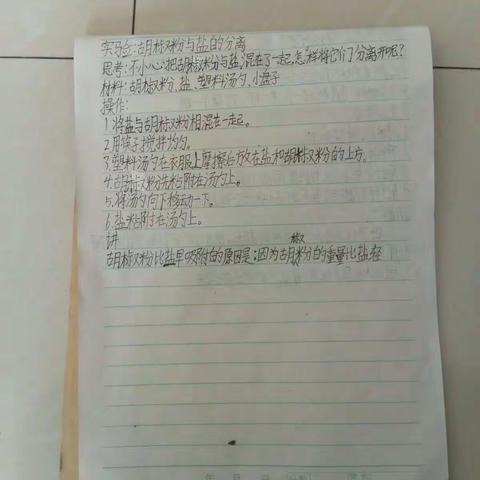 实验:胡椒粉与盐的分离
思考:不小心把胡椒粉与盐混在了一起,怎样将它们分离开呢?
材料:胡椒粉、盐、塑料汤勺、小盘子
操作:
1.将盐与胡椒粉相混在一起。
2.用筷子搅拌均匀。
3.塑料汤勺在衣服上摩擦后放在盐和胡椒粉的上方。
4.胡椒粉先粘附在汤勺上。
5.将汤勺向下移动一下。
6.盐粘附在汤勺上。
讲
胡椒粉比盐早吸附的原因是:因为胡椒粉的重量比盐轻